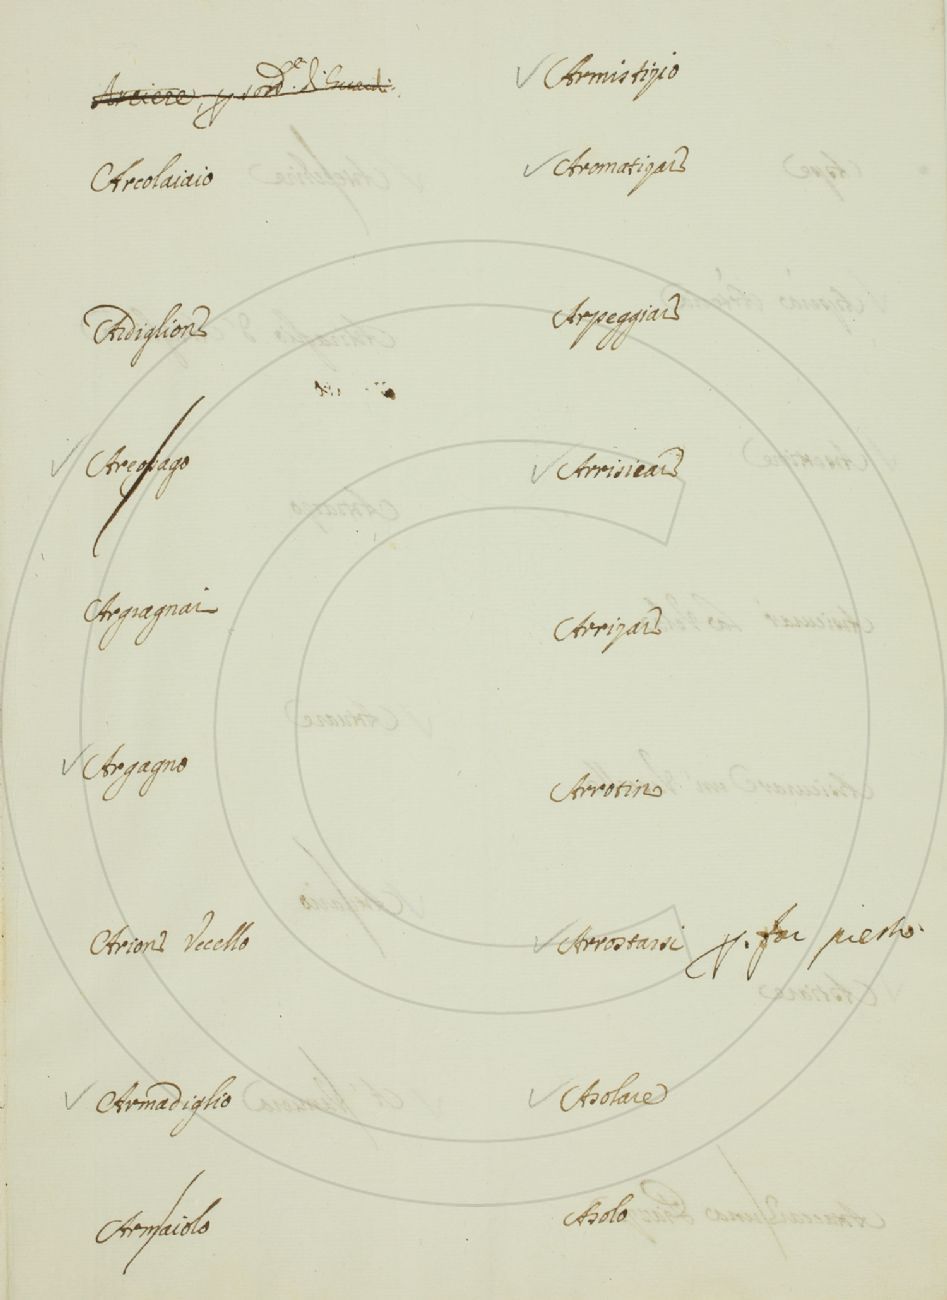 Arciere, p sord.e di Guardi.
Arcolaiaio
Ardiglione
Areopago
Argiagnai
Argagno
Arione Vecello
Armadiglio
Armaiolo
Armistizio
Aromatizare
Arpeggiare
Arrisicare
Arrizare
Arrotino
Arrostarsi p. far presto.
Asolare
Asolo